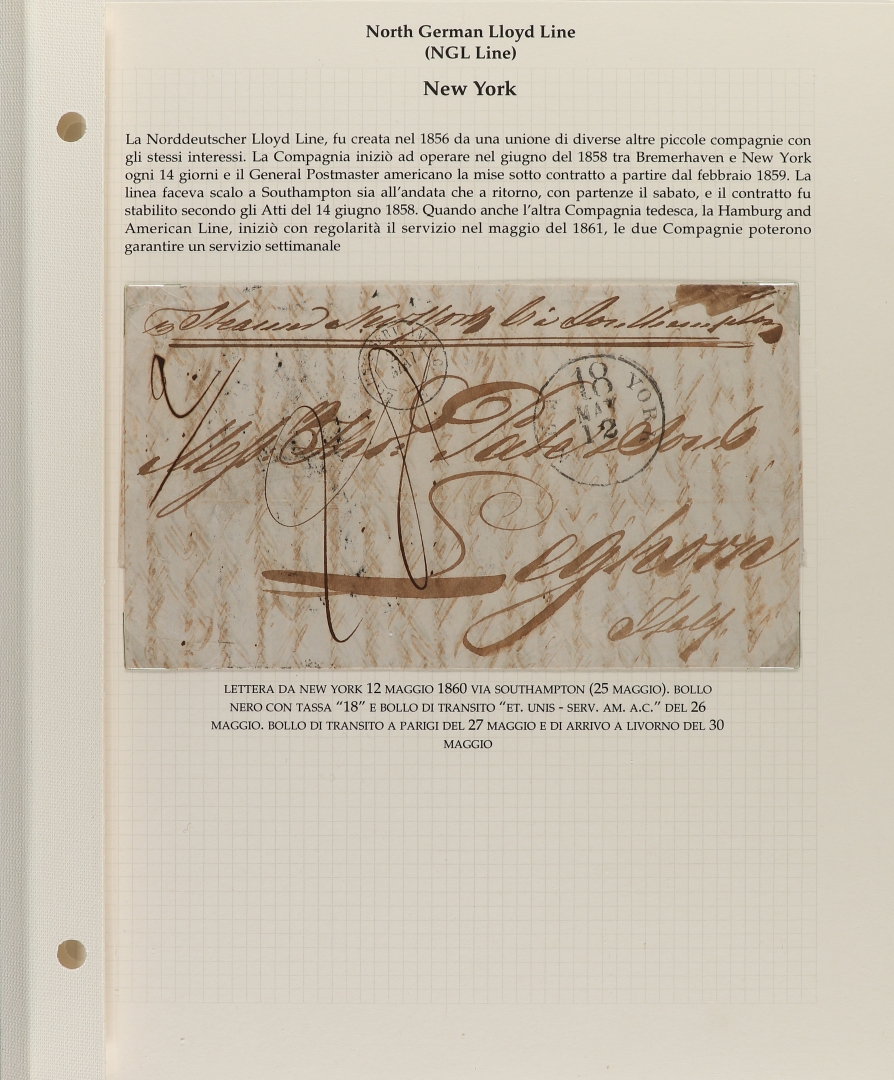 North German Lloyd Line
(NGL Line)
New York
La Norddeutscher Lloyd Line, fu creata nel 1856 da una unione di diverse altre piccole compagnie con
gli stessi interessi. La Compagnia iniziò ad operare nel giugno del 1858 tra Bremerhaven e New York
ogni 14 giorni e il General Postmaster americano la mise sotto contratto a partire dal febbraio 1859. La
linea faceva scalo a Southampton sia all'andata che a ritorno, con partenze il sabato, e il contratto fu
stabilito secondo gli Atti del 14 giugno 1858. Quando anche l'altra Compagnia tedesca, la Hamburg and
American Line, iniziò con regolarità il servizio nel maggio del 1861, le due Compagnie poterono
garantire un servizio settimanale
Steamer New York Via Southampton
18
YORK
MAY
12
Leghorn
Italy
18
LETTERA DA NEW YORK 12 MAGGIO 1860 VIA SOUTHAMPTON (25 MAGGIO). BOLLO
NERO CON TASSA "18" E BOLLO DI TRANSITO "ET. UNIS - SERV. AM. A.C." DEL 26
MAGGIO. BOLLO DI TRANSITO A PARIGI DEL 27 MAGGIO E DI ARRIVO A LIVORNO DEL 30
MAGGIO